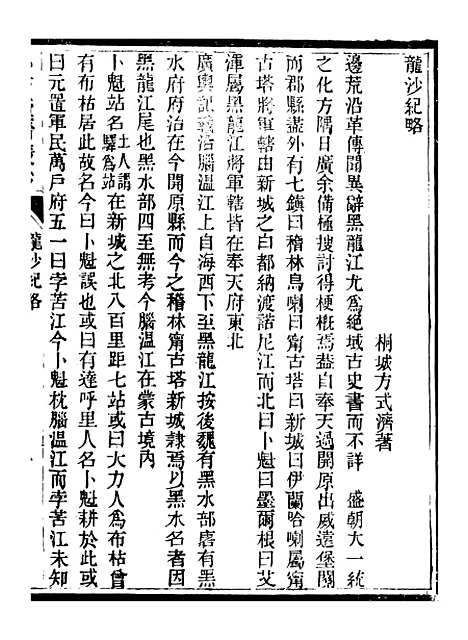 龍沙紀略
桐城方式濟著
邊荒沿革傳聞異辭黑龍江尤爲絕域古史書而不詳　盛朝大一統
之化方隅日廣余備極搜討得梗槪焉蓋自奉天過開原出威遠堡關
而郡縣盡外有七鎮曰稽林烏喇曰甯古塔曰新城曰伊蘭哈喇屬甯
古塔將軍轄由新城之白都納渡諾尼江而北曰卜魁曰墨爾根曰艾
渾屬黑龍江將軍轄皆在奉天府東北
廣輿記載活腦溫江上自海西下至黑龍江按後魏有黑水部唐有黑
水府府治在今開原縣而今之稽林甯古塔新城隸焉以黑水名者因
黑龍江尾也黑水部四至無考今腦溫江在蒙古境內
卜魁站名土人謂驛爲站在新城之北八百里距七站或曰大力人爲布枯曾
有布枯居此故名今曰卜魁誤也或曰有達呼里人名卜魁耕於此或
曰元置軍民萬戶府五一曰孛苦江今卜魁枕腦溫江而孛苦江未知
龍沙紀略